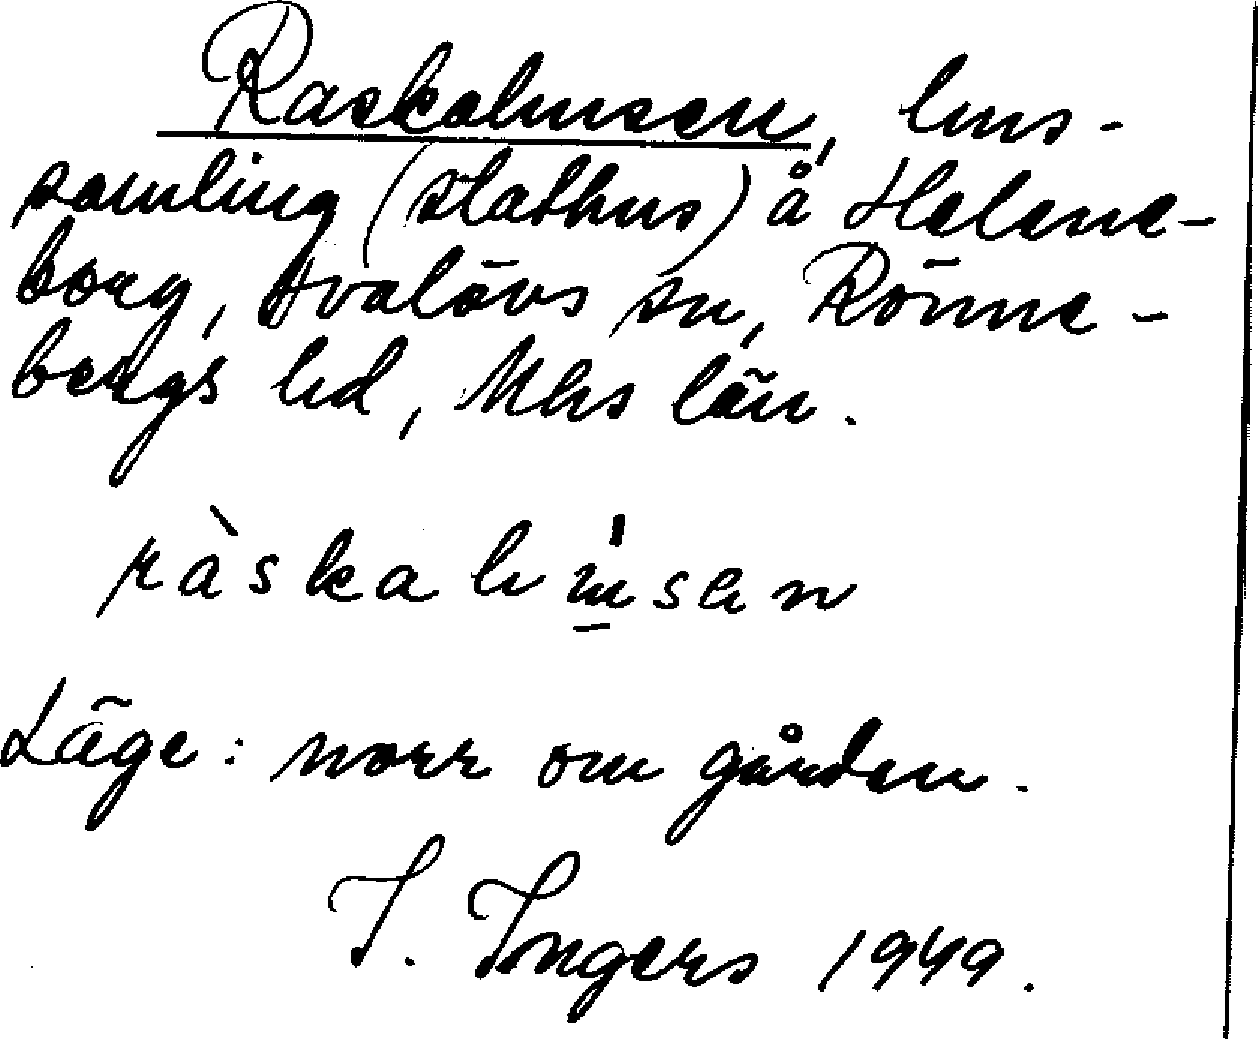 Raskahusen, hus-
samling (stathus) å Helene-
borg, Svalövs sn, Rönne-
bergs hd, Mhs län.
ràskahu̲̍sen
Läge: norr om gården.
I. Ingers 1949.